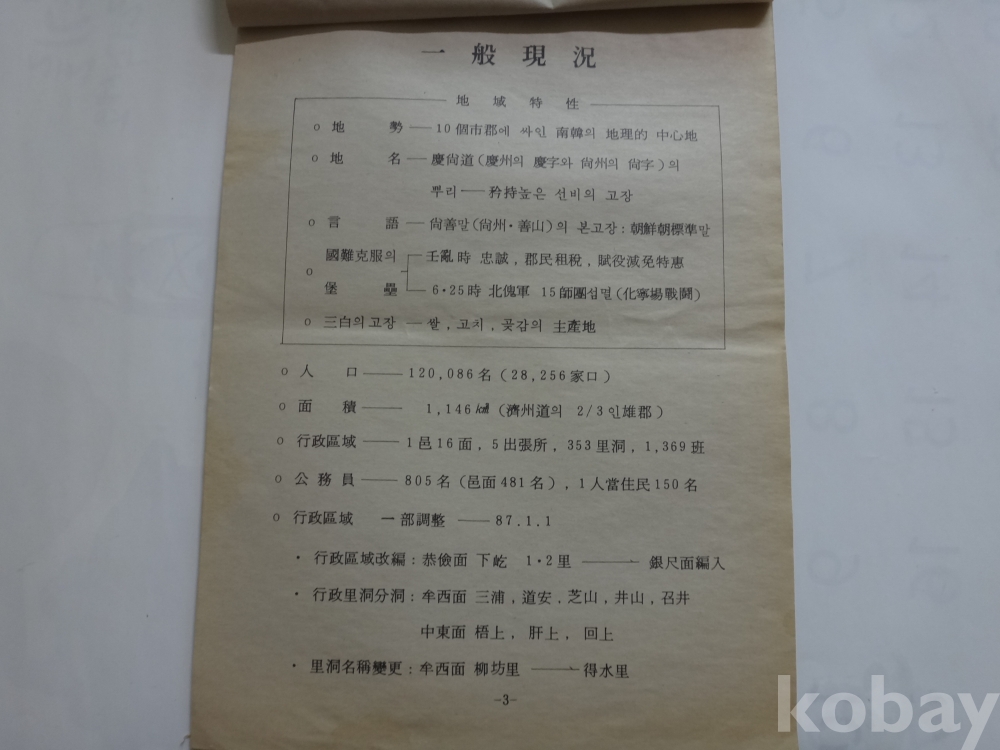 一般現況
地域特性
o 地勢 — 10個市郡에 싸인 南韓의 地理的 中心地
o 地名 — 慶尙道(慶州의 慶字와 尙州의 尙字)의
뿌리 — 矜持높은 선비의 고장
o 言語 — 尙善말(尙州·善山)의 본고장: 朝鮮朝標準말
國難克服의 壬亂時 忠誠, 郡民租稅, 賦役減免特惠
o
堡壘 6·25時 北傀軍 15師團섬멸(化寧場戰鬪)
o 三白의고장 — 쌀, 고치, 곶감의 主產地
o 人口 — 120,086名(28,256家口)
o 面積 — 1,146㎢(濟州道의 2/3인雄郡)
o 行政區域 — 1邑16面, 5出張所, 353里洞, 1,369班
o 公務員 — 805名(邑面481名), 1人當住民150名
o 行政區域 一部調整 — 87.1.1
· 行政區域改編: 恭儉面 下屹 1·2里 → 銀尺面編入
· 行政里洞分洞: 牟西面 三浦, 道安, 芝山, 井山, 召井
中東面 梧上, 肝上, 回上
· 里洞名稱變更: 牟西面 柳坊里 → 得水里
-3-
kobay